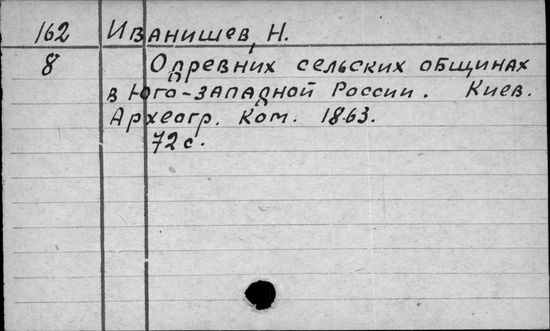 162 Иванишев, Н.
8 О древних сельских общинах
в Юго-западной России. Киев.
Археогр. Ком. 1863.
72 с.